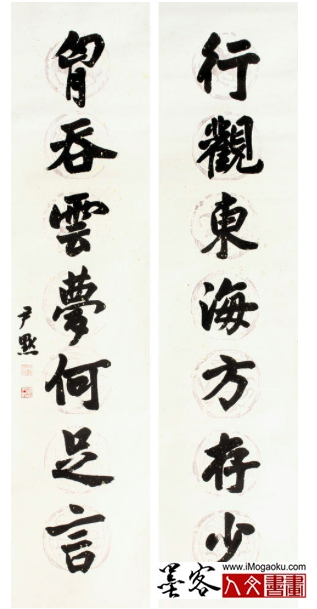 行觀東海方存少
胷吞雲夢何足言
尹默
www.iMogaoku.com
墨客
人文書畫